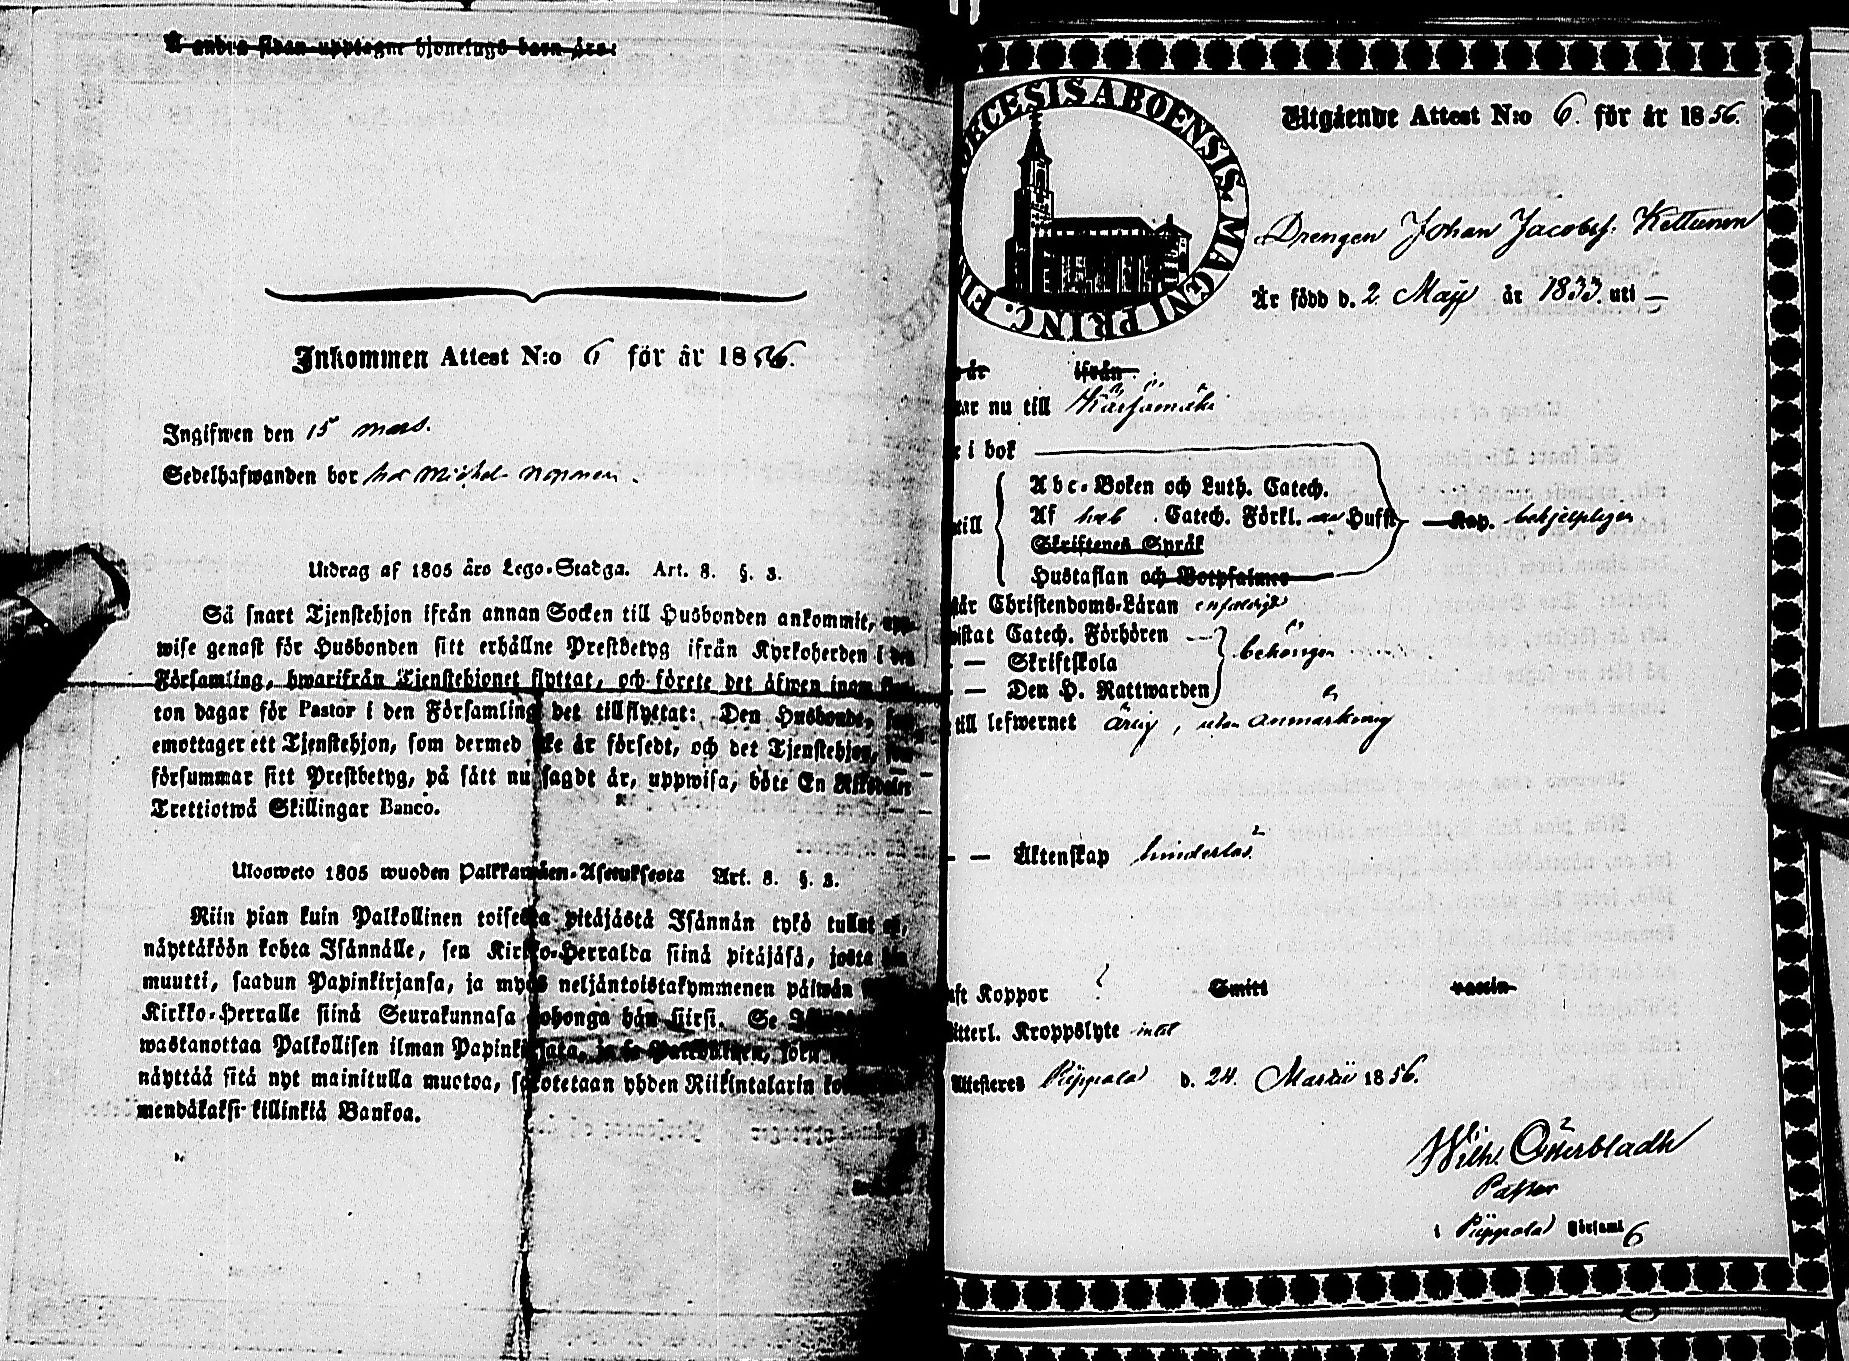 Å andra sidan upptagne hjonelags barn äro:
Inkommen Attest N:o 6 för år 1856.
Ingifwen den 15 mars.
Sedelhafwanden bor hos Michel
Utdrag af 1805 års Lego-Stadga. Art. 8. §. 3.
Så snart Tjenstehjon ifrån annan Socken till Husbonden ankommit, upp-
wise genast för Husbonden sitt erhållne Prestbetyg ifrån Kyrkoherden i den
Församling, hwarifrån Tjenstehjonet flyttat, och förete det äfwen inom fjor-
ton dagar för Pastor i den Församling det tillflyttat: Den Husbonde, som
emottager ett Tjenstehjon, som dermed icke är försedt, och det Tjenstehjon, som
försummar sitt Prestbetyg, på sätt nu sagdt är, uppwisa, böte En Riksdaler
Trettiotwå Skillingar Banco.
Ulosweto 1805 wuoden Palkkawäen-Asetuksesta Art. 8. §. 3.
Niin pian kuin Palkollinen toisesta pitäjästä Isännän tykö tullut on,
näyttäköön kohta Isännälle, sen Kirkko-Herralda siinä pitäjäsä, josta hän
muutti, saadun Papinkirjansa, ja myös neljäntoistakymmenen päiwän
Kirkko-Herralle siinä Seurakunnasa johonga hän siirsi. Se
wastanottaa Palkollisen ilman Papinkirjata, ja se Palkollinen, joka
näyttää sitä nyt mainitulla muotoa, sakotetaan yhden Riikintalarin
mendäkaksi killinkiä Bankoa.
DIOECESIS ABOENSIS MAGNI PRINC. FIN
Utgående Attest N:o 6. för år 1856.
Drengen Johan Jacobss. Kettunen
Är född d. 2 Maij år 1833. uti —
år ifrån
tar nu till Kärsämäki
r i bok
till
Abc-Boken och Luth. Catech.
Af Catech. Förkl. Husst. — Kap. behjelpligen
Skriftenes Språk
Hustaflan och Botpsalmer
tår Christendoms-Läran enfaldigt
istat Catech. Förhören
— — Skriftskola behörigen
— — Den H. Nattwarden
till lefwernet ärlig, utan anmärkning
— — Äktenskap hinderlös
aft Koppor Smitt vaccin
itterl. Kroppslyte intet
Attesteres Piippola d. 24. Martii 1856.
Wilh. Österbladh
Pastor
i Piippola Församl
6